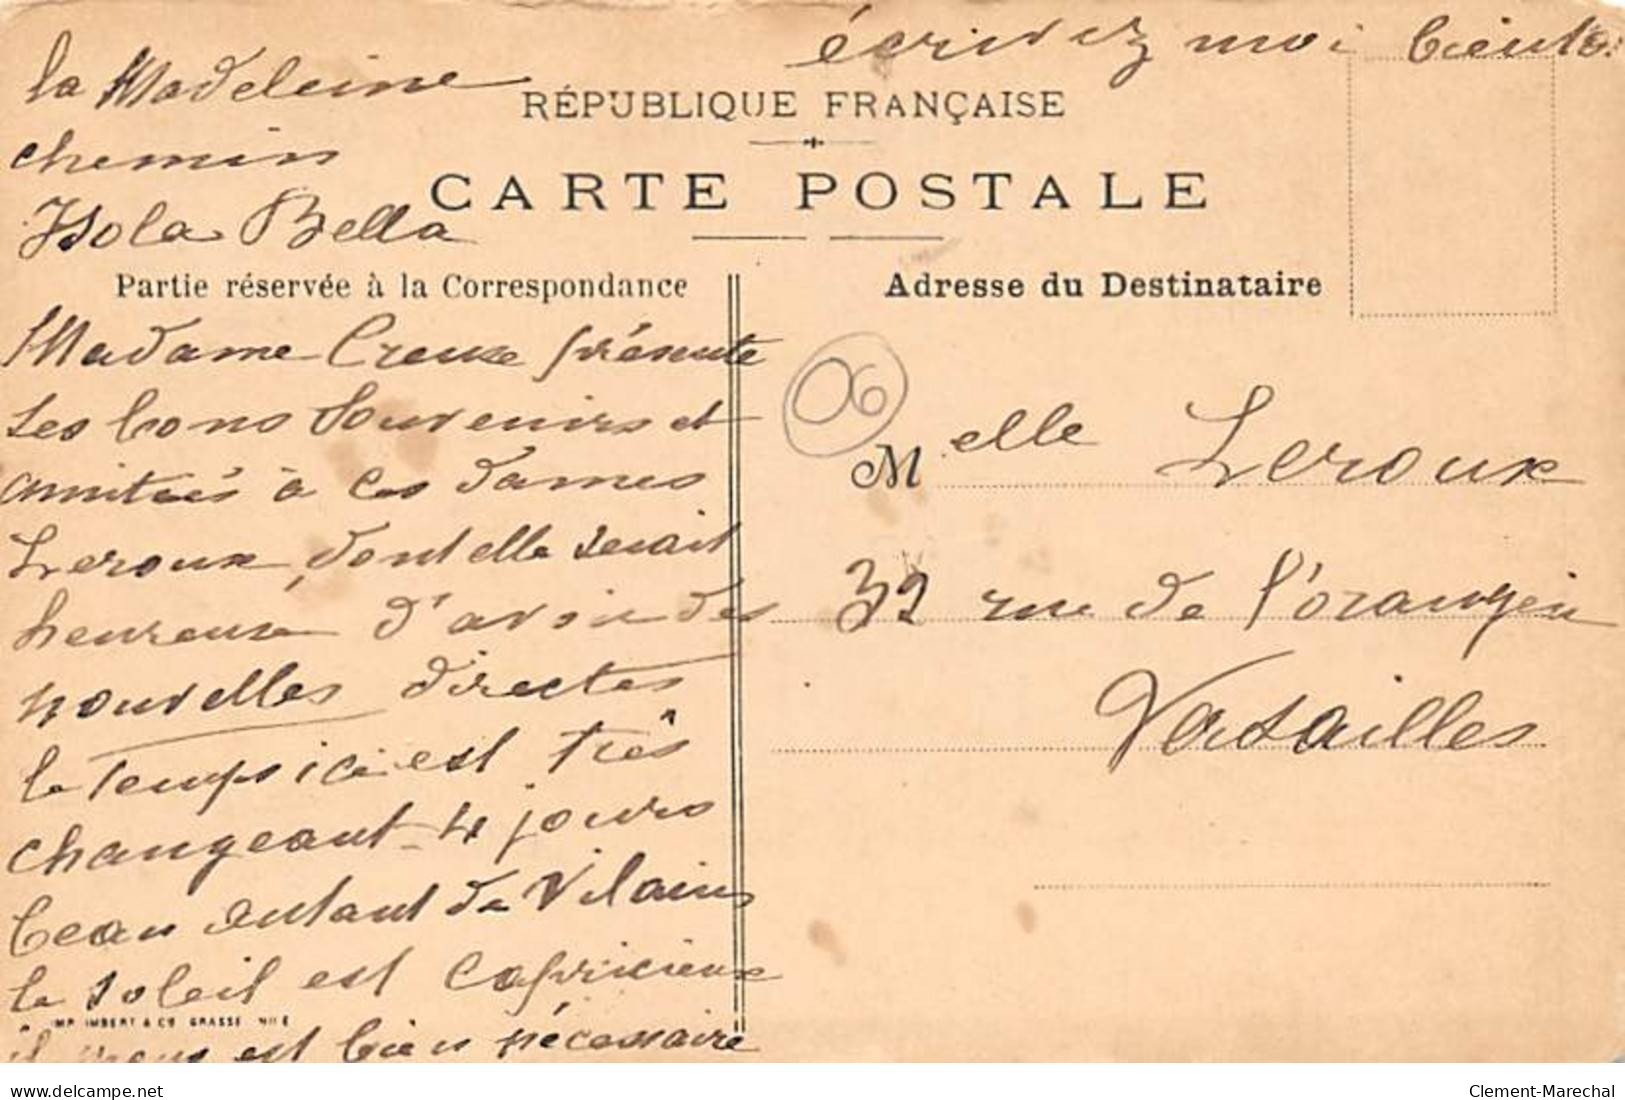 écrivez moi bientôt
la Madeleine
chemin
Isola Bella
RÉPUBLIQUE FRANÇAISE
CARTE POSTALE
Partie réservée à la Correspondance
Adresse du Destinataire
Madame Creuze présente
ses bons souvenirs et
amitiés à ces dames
Leroux, dont elle serait
heureuse d'avoir des
nouvelles directes
le temps ici est très
changeant 4 jours
beau autant de vilains
le soleil est capricieux
il nous est bien nécessaire
06
Melle Leroux
32 rue de l'orangerie
Versailles
IMP. IMBERT & Cº GRASSE NICE
delcampe.net
Clement-Marechal